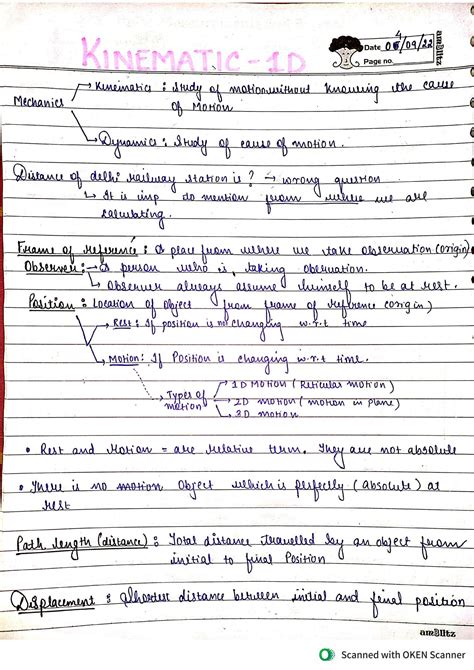 am3litz
Date 04/09/22
Page no.
KINEMATIC - 1D
Mechanics → Kinematics : Study of motion without knowing the cause
of Motion
→ Dynamics : Study of cause of motion.
Distance of delhi railway station is? → wrong question
↳ It is imp do mention from where we are
calculating.
Frame of reference : A place from where we take observation (origin)
Observer :- → A person who is taking obervation.
↳ Observer always assume himself to be at rest.
Position : Location of object from frame of reference (origin)
→ Rest : If position is not changing w.r.t time
→ MOTION : If Position is changing w.r.t time.
Types of motion → 1D MOTION ( Reticular motion )
→ 2D MOTION ( motion in plane)
→ 3D MOTION
• Rest and Motion = are relative term. They are not absolute
• There is no motion Object which is perfectly ( absolute ) at
rest
Path length (distance) : Total distance travelled by an object from
initial to final Position
Displacement : Shortest distance between initial and final position
am3litz
Scanned with OKEN Scanner